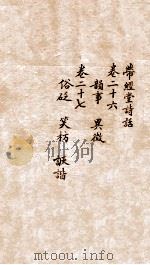 帶經堂詩話
卷二十六
韻事 異徵
卷二十七
俗砭 笑枋 詼諧